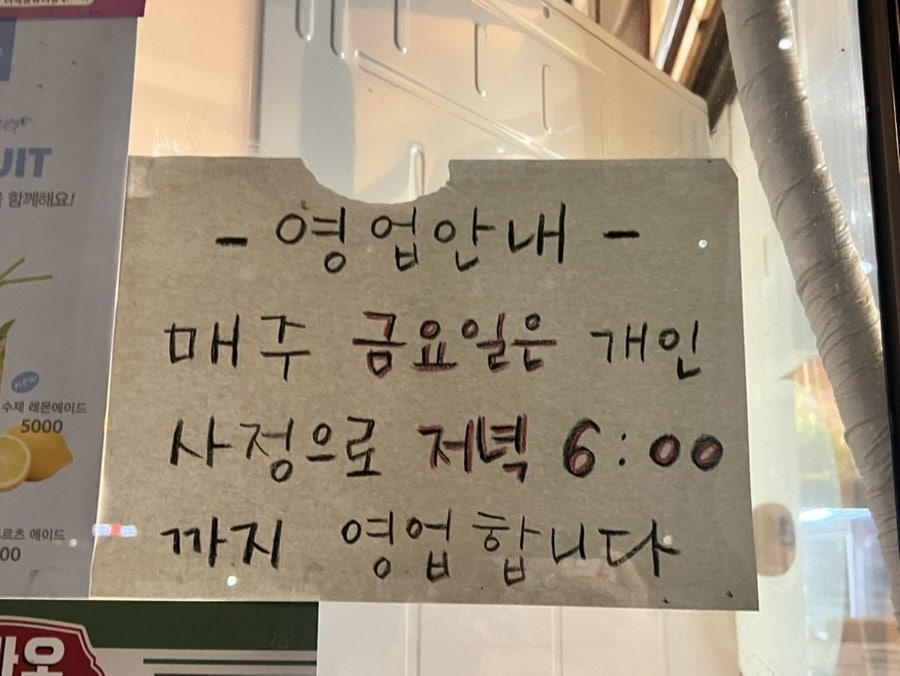 UIT
함께해요!
new
수제 레몬에이드
5000
에이드
00
- 영업안내 -
매주 금요일은 개인
사정으로 저녁 6:00
까지 영업합니다